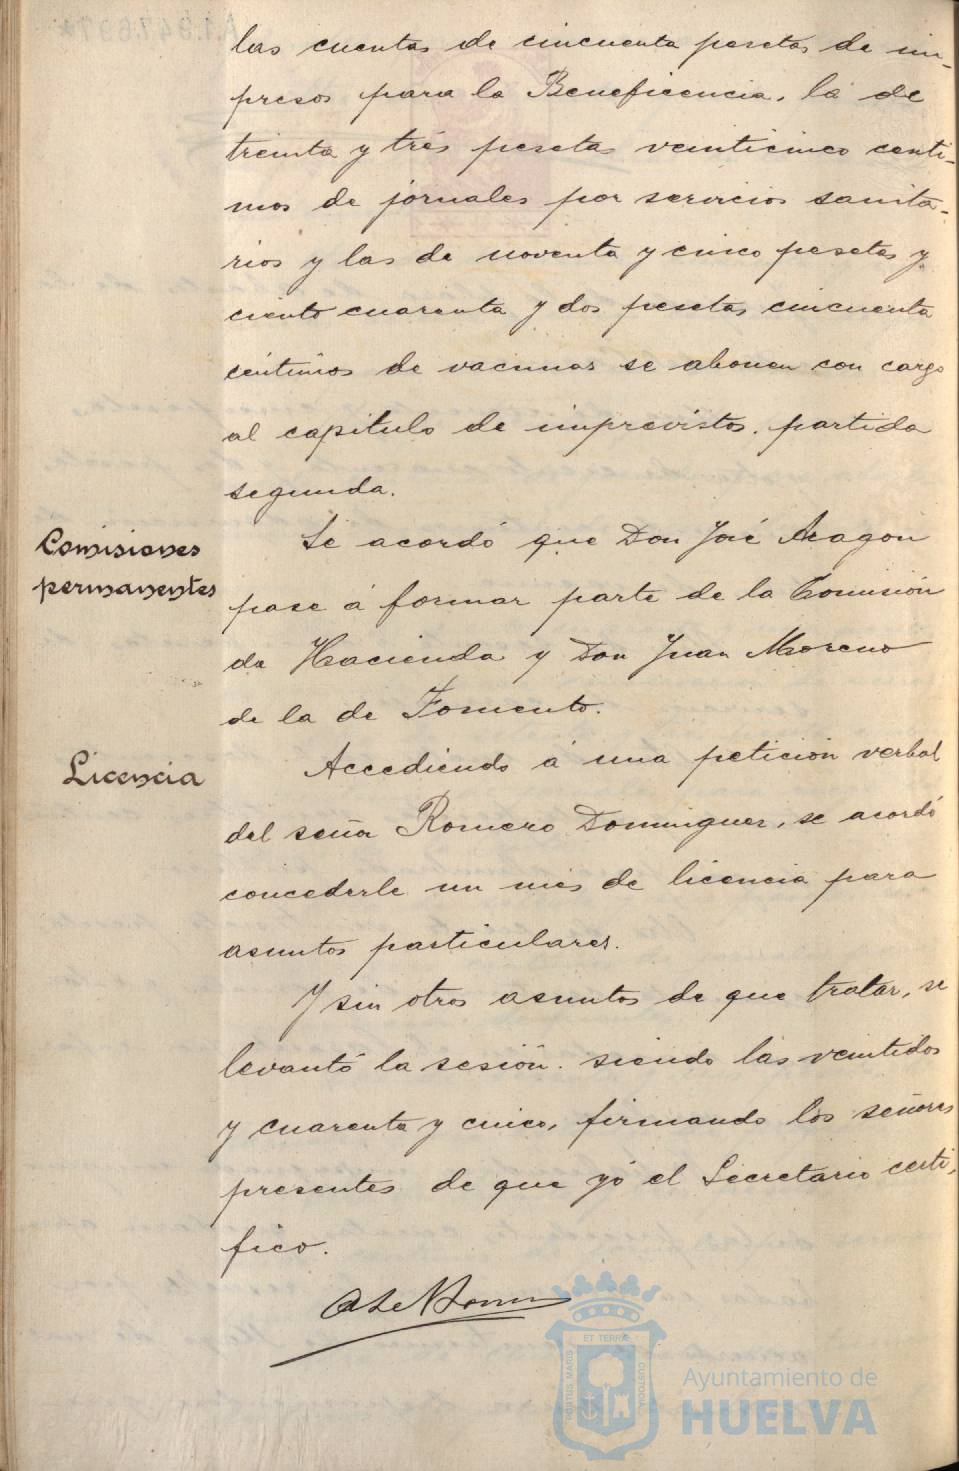 las cuentas de cincuenta pesetas de im-
presos para la Beneficencia, la de
treinta y tres pesetas veinticinco centi-
mos de jornales por servicios sanita-
rios y las de noventa y cinco pesetas y
ciento cuarenta y dos pesetas cincuenta
céntimos de vacunas se abonen con cargo
al capitulo de imprevistos, partida
segunda.
Comisiones
permanentes
Se acordó que Don José Aragon
pase á formar parte de la Comisión
de Hacienda y Don Juan Moreno
de la de Fomento.
Licencia
Accediendo á una petición verbal
del señor Romero Dominguez, se acordó
concederle un mes de licencia para
asuntos particulares.
Y sin otros asuntos de que tratar, se
levantó la sesión. siendo las veintidos
y cuarenta y cinco, firmando los señores
presentes de que yó el Secretario certi-
fico.
PORTUS MARIS ET TERRÆ CUSTODIA
Ayuntamiento de
HUELVA